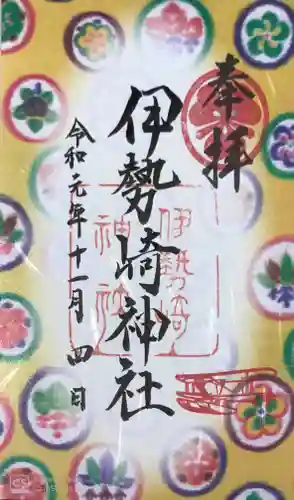 奉拝
伊勢崎神社
令和元年十一月四日
伊勢崎
神社